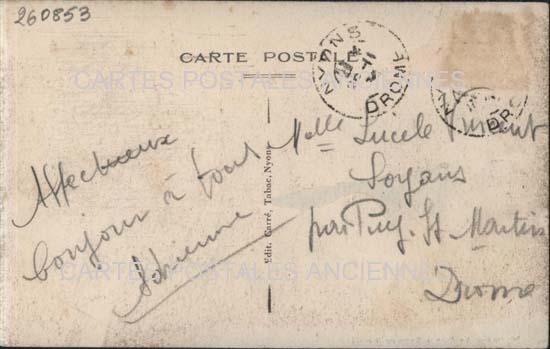 260853
CARTE POSTALE
NYONS
DRÔME
CARTES POSTALES ANCIENNES
Affectueux
bonjour à tout
Adrienne
Edit. Carré, Tabac, Nyons
Melle Lucile
Soyans
par Puy-St-Martin
Drome
CARTES POSTALES ANCIENNES